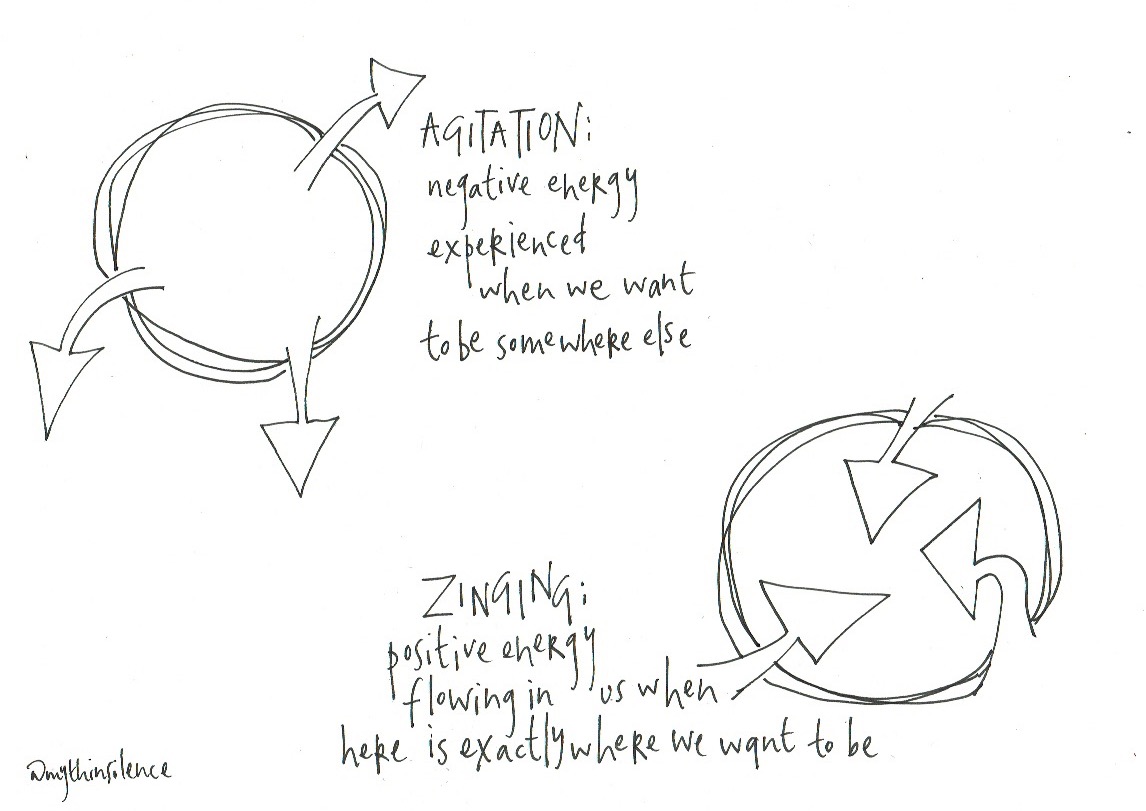 AGITATION:
negative energy
experienced
when we want
to be somewhere else
ZINGING:
positive energy
flowing in us when
here is exactly where we want to be
@mythinsilence